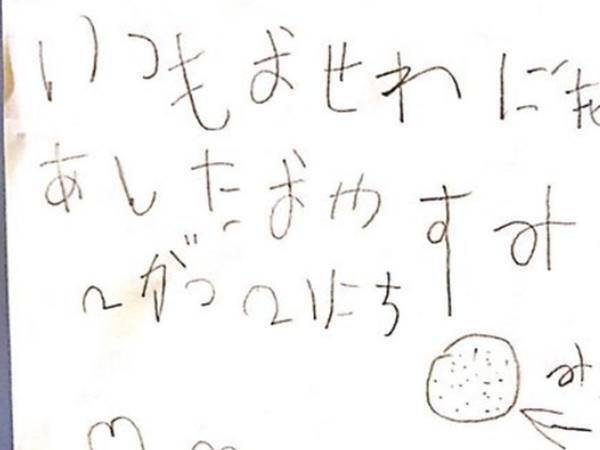 いつもおせわに
あしたおやすみ
がつ にち
み